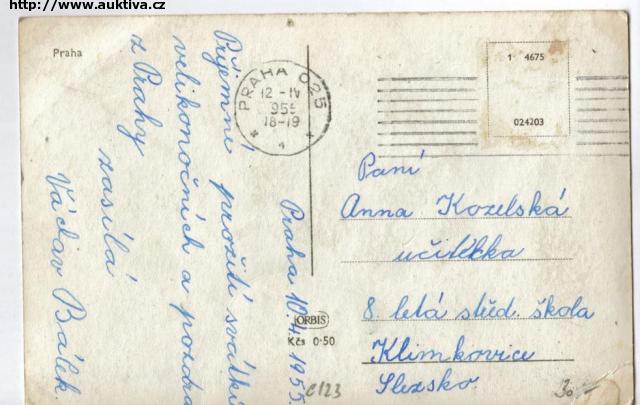 http://www.auktiva.cz
Praha
PRAHA 025
12 -IV
955
18-19
4
1 4675
024203
Praha 10.4.1955.
Příjemné prožití svátků
velikonočních a pozdrav
z Prahy
zasílá
Václav Bálek.
Paní
Anna Kozelská
učitelka
8. letá střed. škola
Klimkovice
Slezsko.
ORBIS
Kčs 0·50
C123
30